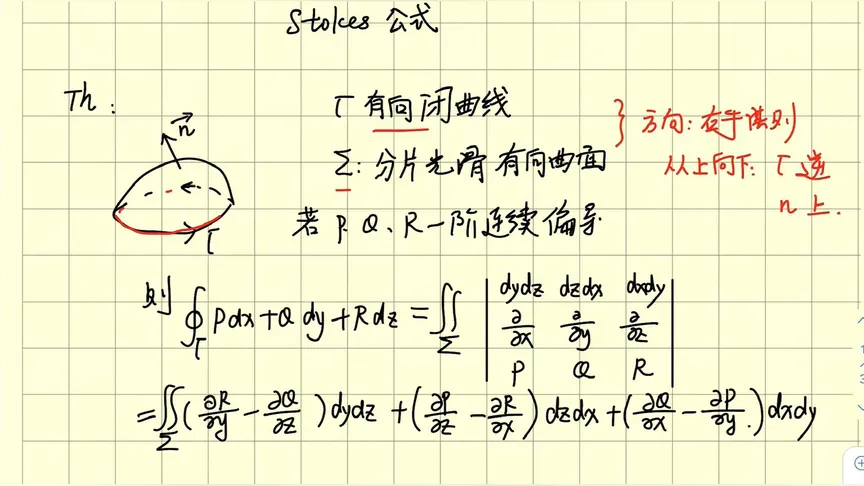 Stokes 公式
Th:
n⃗
Γ
Γ 有向闭曲线
Σ: 分片光滑有向曲面
} 方向: 右手法则
从上向下: Γ 逆
n 上.
若 P、Q、R 一阶连续偏导
则 ∮_Γ Pdx+Qdy+Rdz = ∬_Σ | dydz dzdx dxdy |
| ∂/∂x ∂/∂y ∂/∂z |
| P Q R |
= ∬_Σ (∂R/∂y - ∂Q/∂z) dydz + (∂P/∂z - ∂R/∂x) dzdx + (∂Q/∂x - ∂P/∂y) dxdy